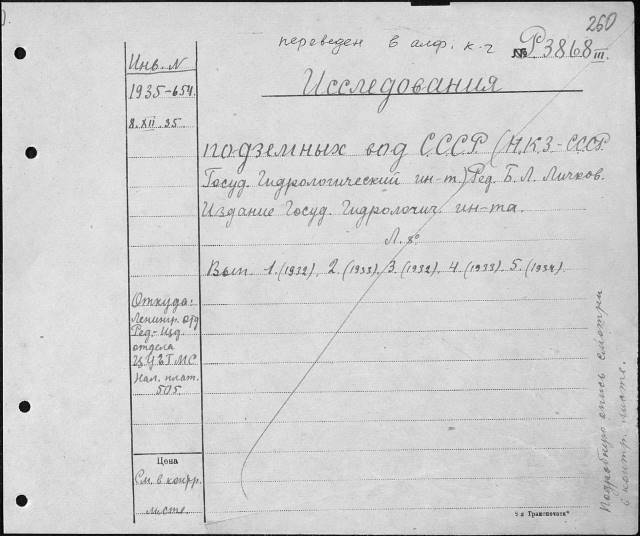 260
переведен в алф. к-г № P3868 III.
Исследования
Инв. N
1935-654.
8.XII.35.
подземных вод С.С.С.Р. (Н.К.З.-С.С.С.Р.
Госуд. Гидрологический ин-т) Ред. Б. Л. Личков.
Издание Госуд. Гидрологич. ин-та.
Л. 8°
Вып. 1. (1932), 2. (1933), 3. (1932), 4. (1933), 5. (1934).
Откуда:
Ленингр. отд
Ред.-Изд.
отдела
ЦУЕГМС
Нал. плат.
505.
Цена
См. в контр.
листе.
Подробную опись смотри
в контр. листе.